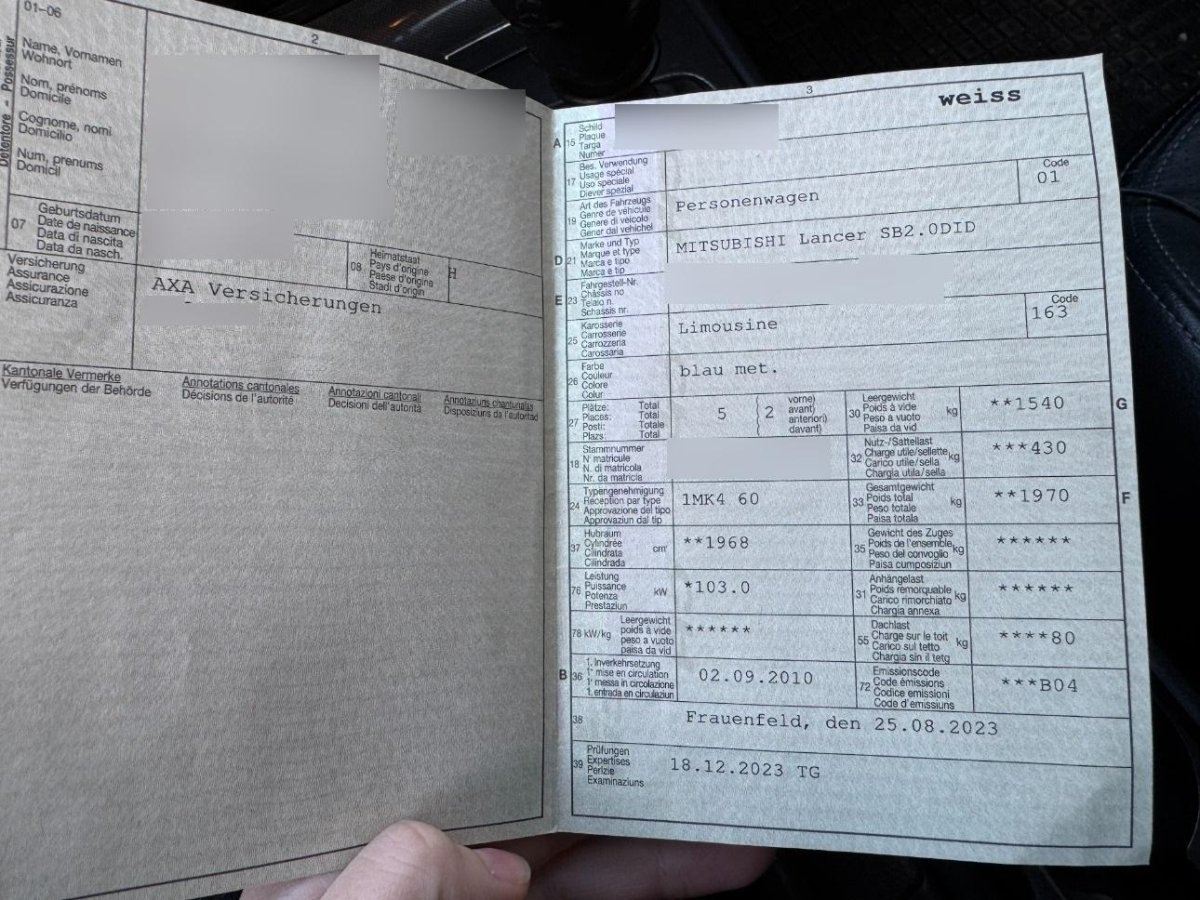 2
01–06
Detentore – Possessur
Name, Vornamen
Wohnort
Nom, prénoms
Domicile
Cognome, nomi
Domicilio
Num, prenums
Domicil
07
Geburtsdatum
Date de naissance
Data di nascita
Data da nasch.
08
Heimatstaat
Pays d'origine
Paese d'origine
Stadi d'origin
Versicherung
Assurance
Assicurazione
Assicuranza
AXA Versicherungen
Kantonale Vermerke
Verfügungen der Behörde
Annotations cantonales
Décisions de l'autorité
Annotazioni cantonali
Decisioni dell'autorità
Annotaziuns chantunalas
Disposiziuns da l'autoritad
3
weiss
A 15
Schild
Plaque
Targa
Numer
17
Bes. Verwendung
Usage spécial
Uso speciale
Diever spezial
19
Art des Fahrzeugs
Genre de véhicule
Genere di veicolo
Gener dal vehichel
Personenwagen
Code
01
D 21
Marke und Typ
Marque et type
Marca e tipo
Marca e tip
MITSUBISHI Lancer SB2.0DID
E 23
Fahrgestell-Nr.
Châssis no
Telaio n.
Schassis nr.
25
Karosserie
Carrosserie
Carrozzeria
Carossaria
Limousine
Code
163
26
Farbe
Couleur
Colore
Colur
blau met.
27
Plätze: Total
Places: Total
Posti: Totale
Plazs: Total
5
2
vorne)
avant)
anteriori)
davant)
30
Leergewicht
Poids à vide
Peso a vuoto
Paisa da vid
kg
**1540
G
18
Stammnummer
N° matricule
N. di matricola
Nr. da matricla
32
Nutz-/Sattellast
Charge utile/sellette
Carico utile/sella
Chargia utila/sella
kg
***430
24
Typengenehmigung
Réception par type
Approvazione del tipo
Approvaziun dal tip
1MK4 60
33
Gesamtgewicht
Poids total
Peso totale
Paisa totala
kg
**1970
F
37
Hubraum
Cylindrée
Cilindrata
Cilindrada
cm³
**1968
35
Gewicht des Zuges
Poids de l'ensemble
Peso del convoglio
Paisa cumposiziun
kg
******
76
Leistung
Puissance
Potenza
Prestaziun
kW
*103.0
31
Anhängelast
Poids remorquable
Carico rimorchiato
Chargia annexa
kg
******
78 kW/kg
Leergewicht
poids à vide
peso a vuoto
paisa da vid
******
55
Dachlast
Charge sur le toit
Carico sul tetto
Chargia sin il tetg
kg
****80
B 36
1. Inverkehrsetzung
1re mise en circulation
1a messa in circolazione
1. entrada en circulaziun
02.09.2010
72
Emissionscode
Code émissions
Codice emissioni
Code d'emissiuns
***B04
38
Frauenfeld, den 25.08.2023
39
Prüfungen
Expertises
Perizie
Examinaziuns
18.12.2023 TG